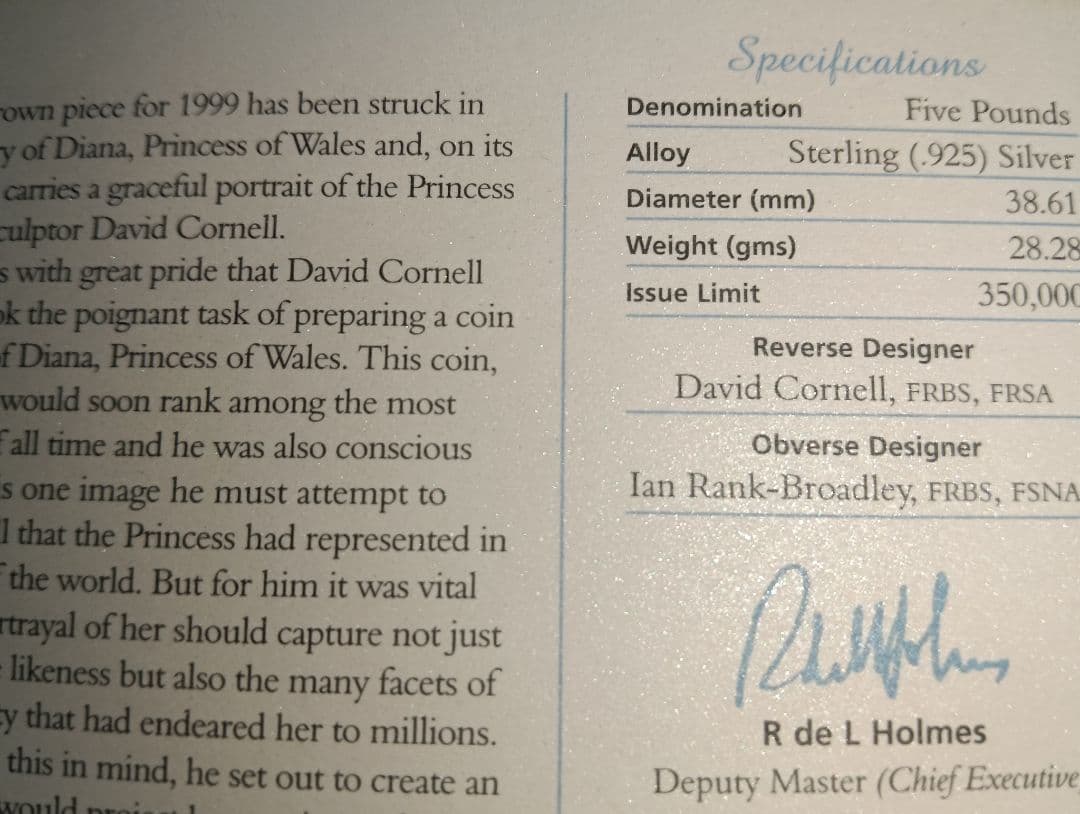 piece for 1999 has been struck in
of Diana, Princess of Wales and, on its
carries a graceful portrait of the Princess
David Cornell.
with great pride that David Cornell
the poignant task of preparing a coin
Diana, Princess of Wales. This coin,
would soon rank among the most
all time and he was also conscious
one image he must attempt to
that the Princess had represented in
the world. But for him it was vital
of her should capture not just
likeness but also the many facets of
that had endeared her to millions.
this in mind, he set out to create an
would
Specifications
Denomination Five Pounds
Alloy Sterling (.925) Silver
Diameter (mm) 38.61
Weight (gms) 28.28
Issue Limit 350,000
Reverse Designer
David Cornell, FRBS, FRSA
Obverse Designer
Ian Rank-Broadley, FRBS, FSNA
R de L Holmes
Deputy Master (Chief Executive